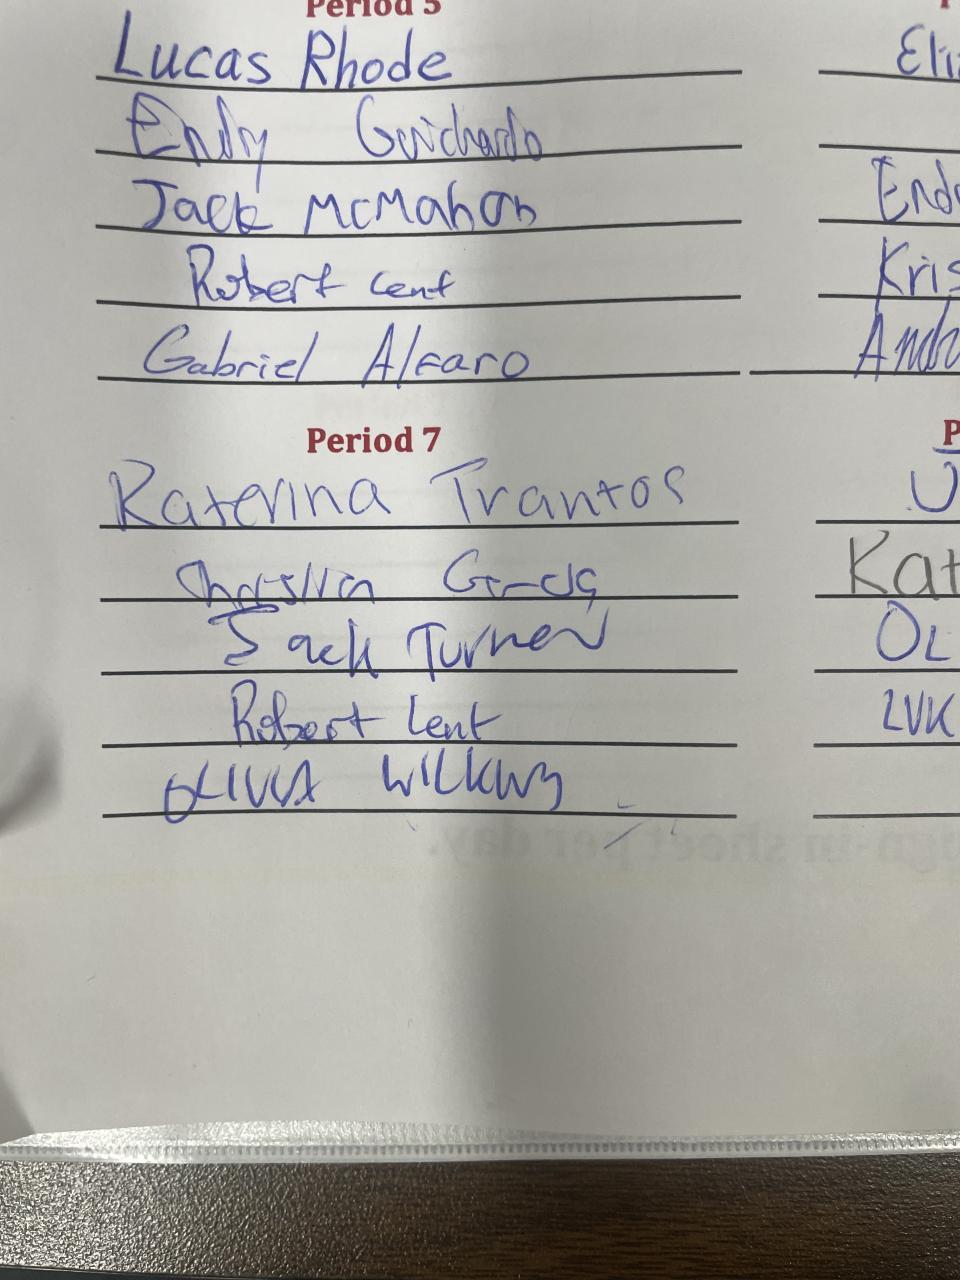 Period 5
Lucas Rhode
Endy Guichardo
Jack McMahon
Robert Lent
Gabriel Alfaro
Period 7
Katerina Trantos
Jack Turner
Robert Lent
OLIVIA WILKINS
Eli
End
Kris
P
U
Kat
OL
LUK
sign-in sheet per day.